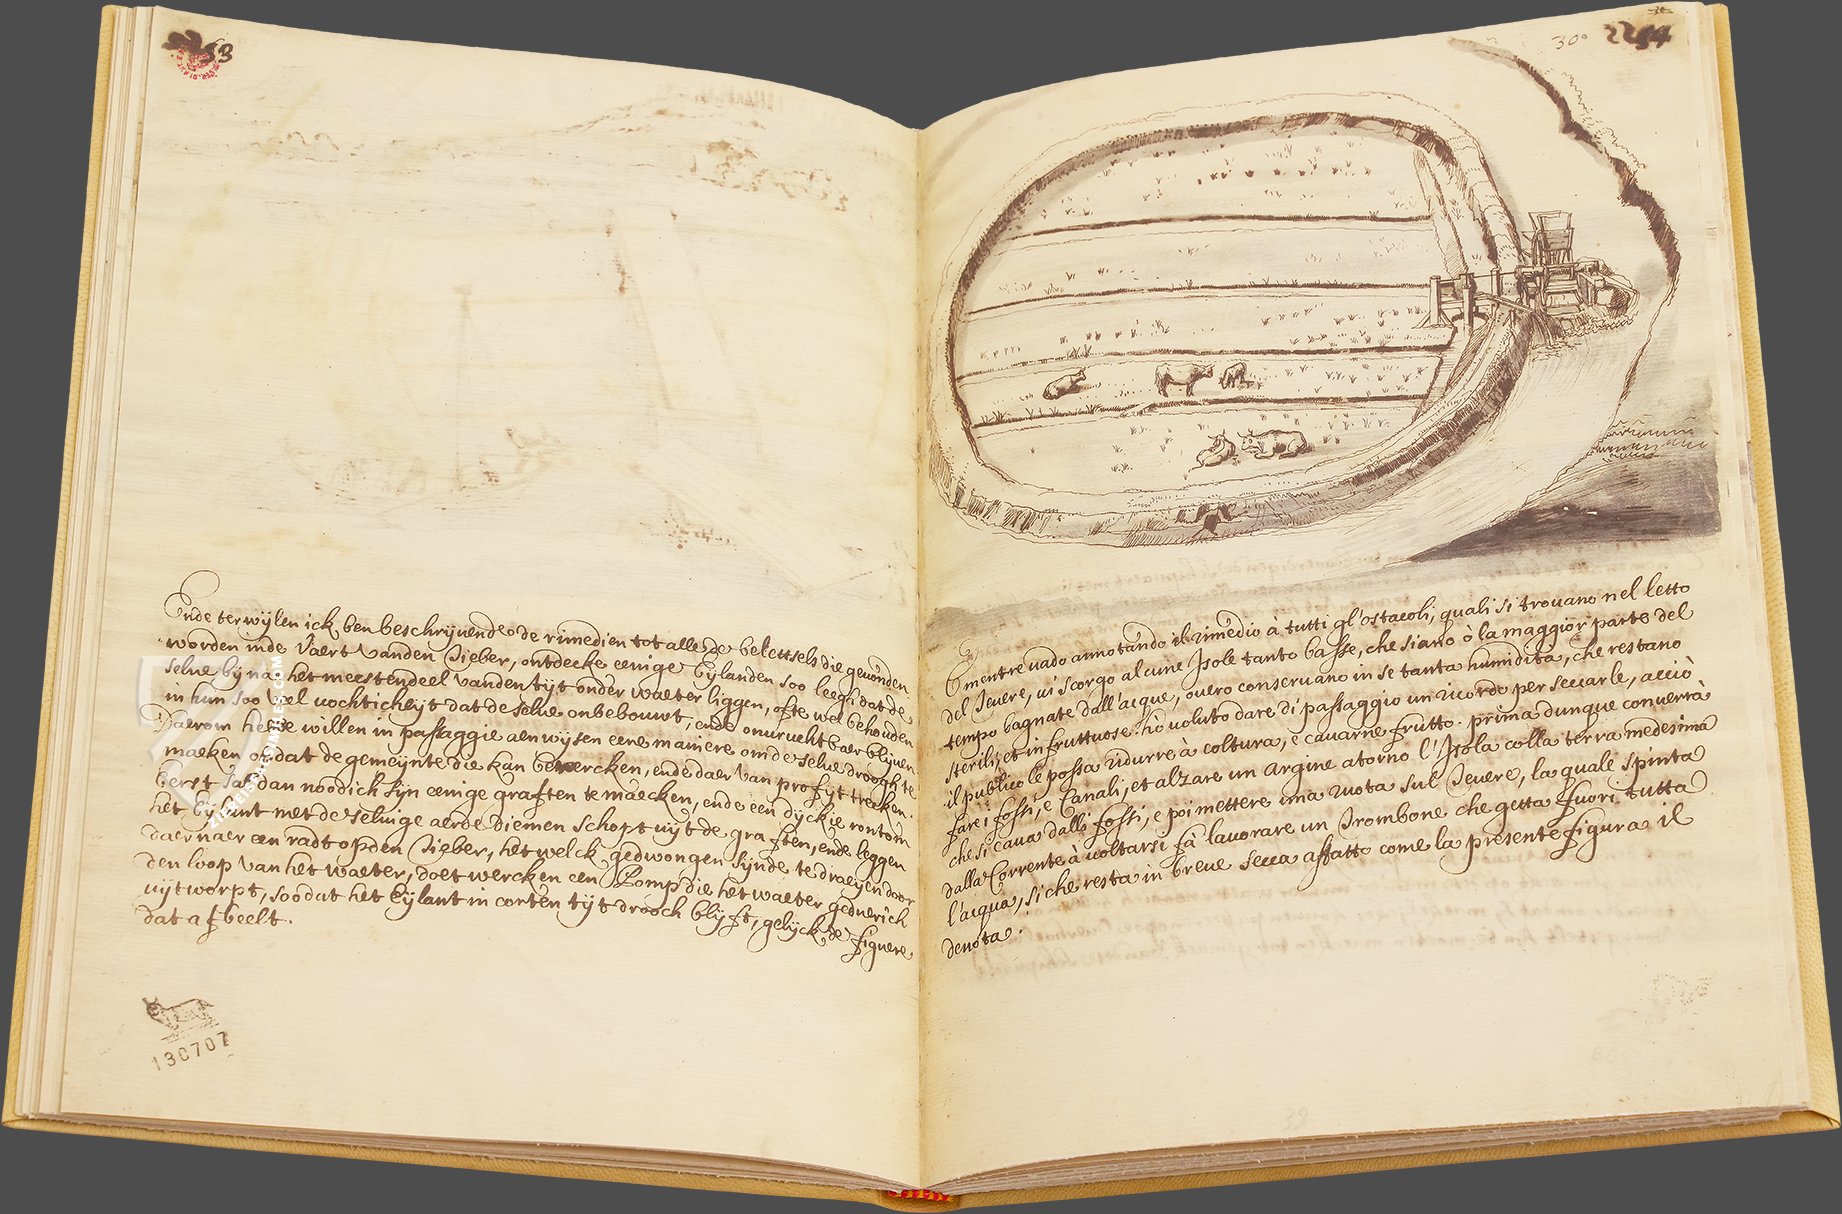 53
Ende terwÿlen ick ben beschrijvende de rimedien tot alle de beletsels die gevonden
worden inde Vaert vanden Tieber, ontdecke eenige Eÿlanden soo leegh dat de
selve bÿ nae het meestendeel vanden tÿt onder waeter liggen, ofte wel behouden
in hun soo veel vochticheÿt dat de selve onbebouwt, ende onvrucht baer blÿven
Daerom hebbe willen in passaggie aenwÿsen eene maniere om de selve droogh te
maeken opdat de gemeÿnte die kan bewercken, ende daer van profÿt trecken.
Eerst sal dan noodich sÿn eenige graften te maecken, ende een dÿckie rontom
het Eÿlant met de selvige aerde diemen schopt uÿt de graften, ende leggen
daer naer een radt op den Tieber, het welck gedwongen sÿnde te draeÿen door
den loop van het waeter, doet wercken een Pomp die het waeter geduerich
uÿtworpt, soo dat het Eÿlant in corten tÿt drooch blÿft, gelÿck de figuere
dat afbeelt.
130707
30
2254
E mentre vado annotando il rimedio à tutti gl'ostacoli, quali si trovano nel letto
del Tevere, vi scorgo alcune Isole tanto basse, che siano ò la maggior parte del
tempo bagnate dall'acque, overo conservano in se tanta humidità, che restano
sterili, et infruttuose. hò voluto dare di passaggio un ricordo per seccarle, acciò
il publico le possa ridurre à coltura, e cavarne frutto. prima dunque converrà
fare i fossi, e Canali, et alzare un argine atorno l'Isola colla terra medesima
che si cava dalli fossi, e poi mettere una ruota sul Tevere, la quale spinta
dalla Corrente à voltarsi fà lavorare un Trombone che getta fuori tutta
l'acqua, si che resta in breve secca affatto come la presente figura il
denota.